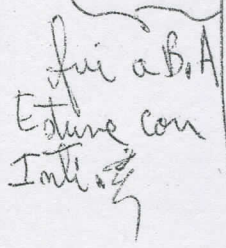 fui a B.A
Estuve con
Inti.